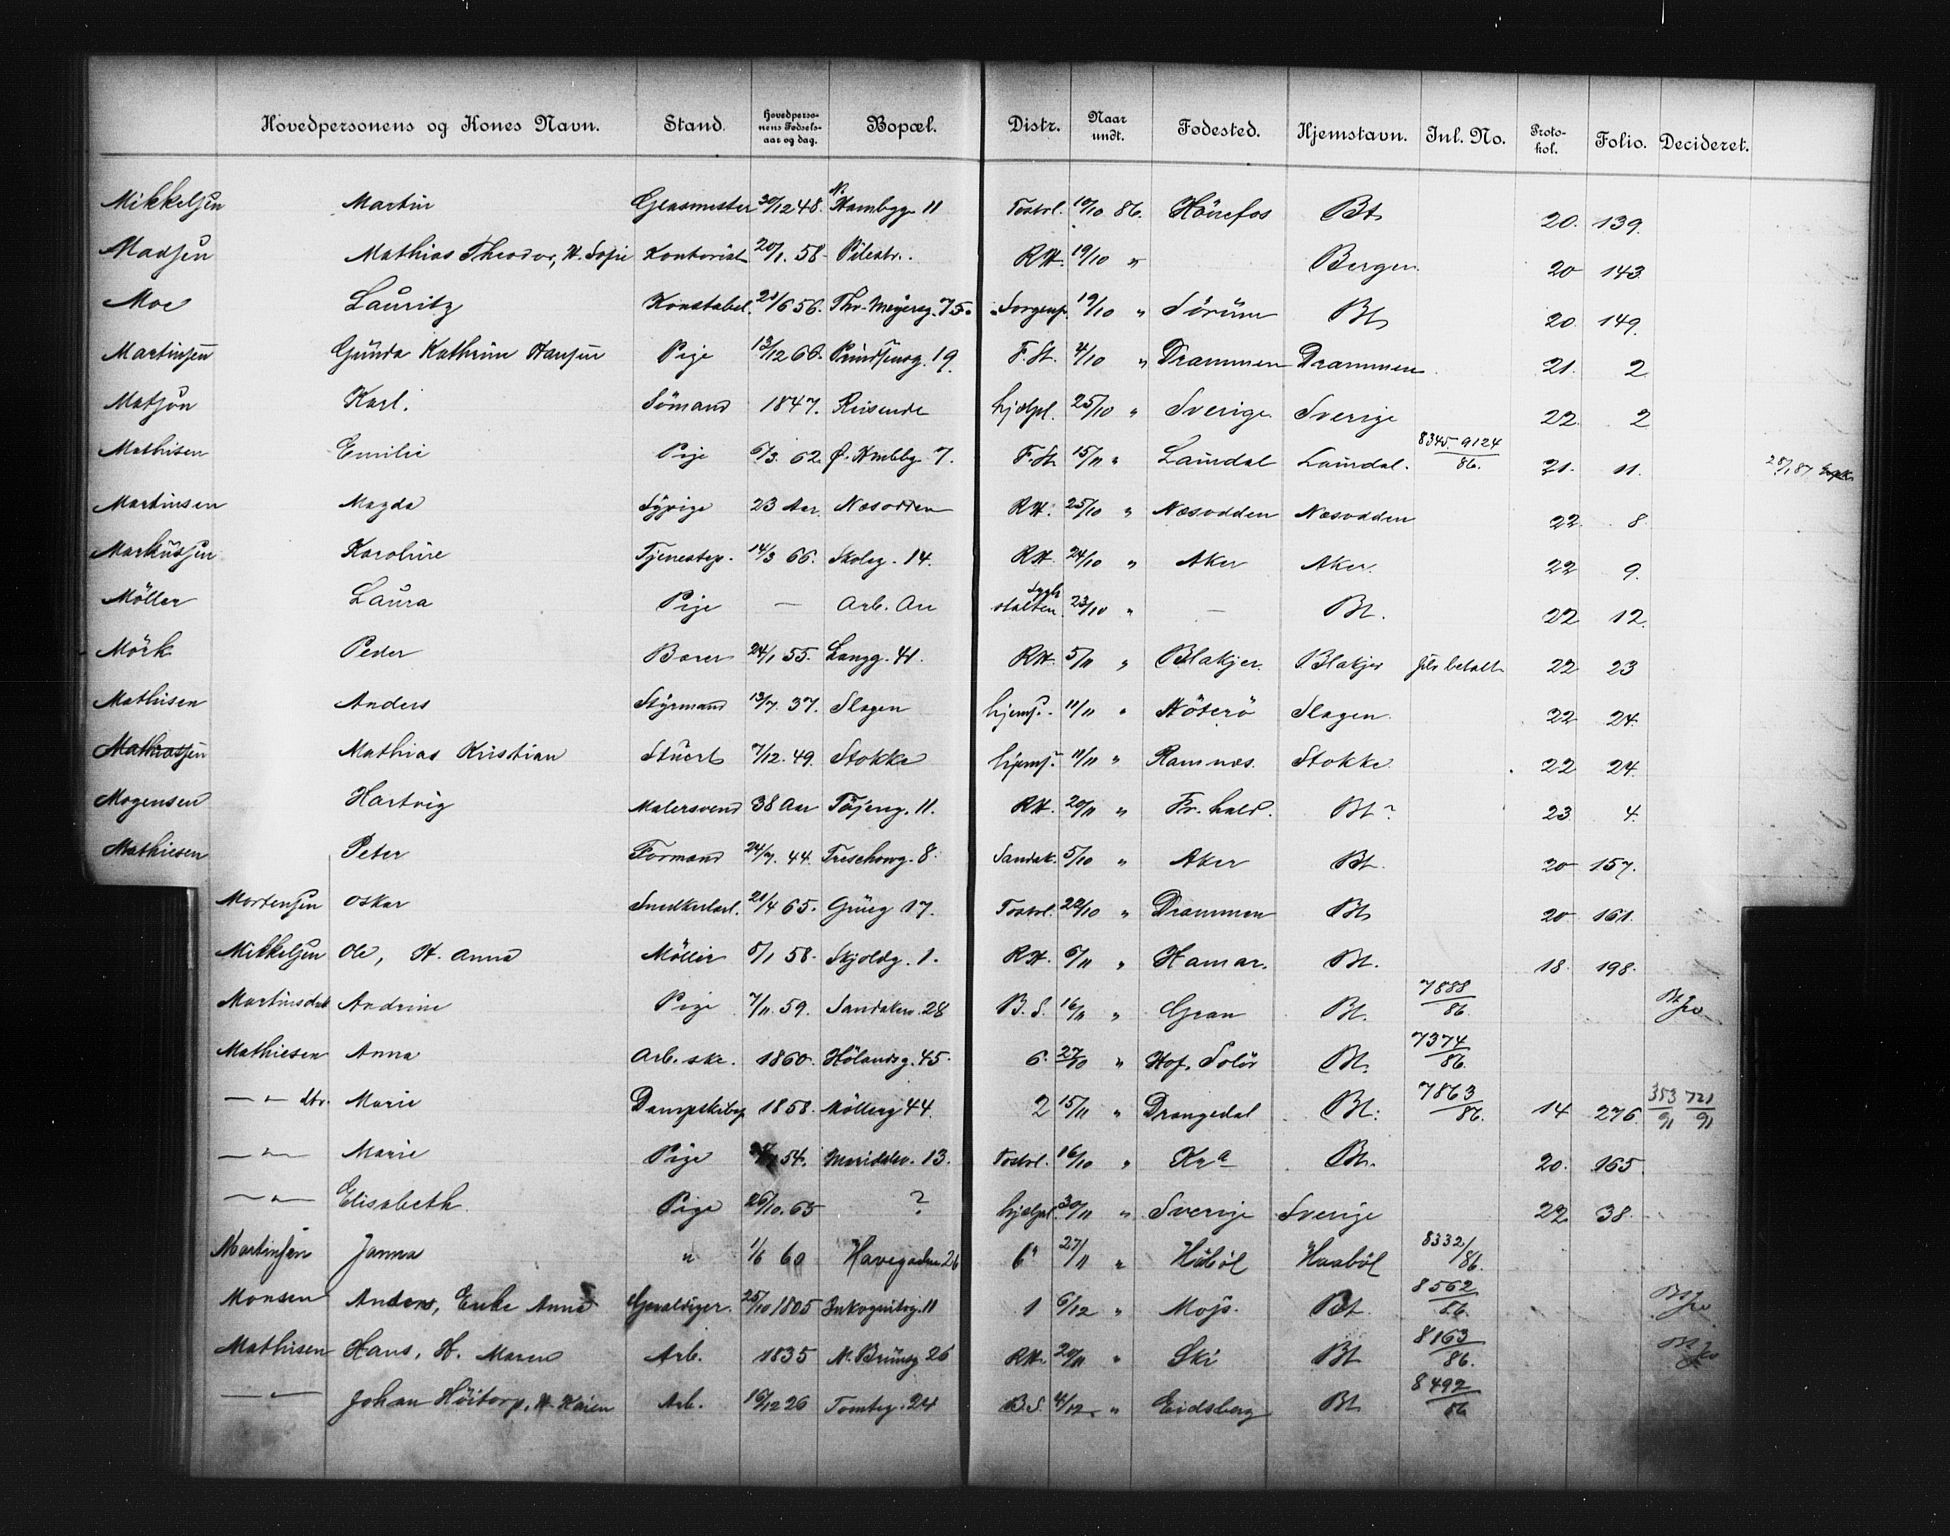 Hovedpersonens og Kones Navn. Stand. Hovedpersonens Fødselsaar og dag. Bopæl. Distr. Naar undt. Fødested. Hjemstavn. Inl. No. Protokol. Folio. Decideret.
Mikkelsen Martin Glasmester 30/12 48. N. Hambgg 11 Tostrl. 19/10 86. Hönefos Bt 20. 139.
Madsen Mathias Theodor, H. Sofie Kontorist 20/1. 58 Pilestr. RH. 19/10 " Bergen 20 143
Moe Lauritz Konstabel 21/6 56. Thv. Meyersg. 75. Sorgenf. 19/10 " Sörum Bt 20. 149.
Martinsen Gunda Kathrine Hansen Pige 13/12 66. Prindsensg. 19. F. St. 4/10 " Drammen Drammen 21. 2
Matson Karl. Sömand 1847. Reisende hjælpl. 25/10 " Sverige Sverige 22. 2
Mathisen Emilie Pige 6/3. 62. Ø. Hmbbg 7. F. St. 15/11 " Laurdal Laurdal. 8345-9124/86. 21. 11. 28/1 87
Martinsen Magda Sypige 23 Aar. Næsodden RH. 25/10 " Næsodden Næsodden 22. 8
Markussen Karoline Tjenestep. 14/3 66. Skoleg. 14. RH. 24/10 " Aker Aker. 22 9.
Möller Laura Pige — Arb. An stalten. 23/10 " — Bt. 22 12.
Mörk Peder Borer 24/1 55. Langg. 41. RH. 5/11 " Blakjer Blakjer betalt 22 23
Mathisen Anders Styrmand 13/7. 37. Slagen hjemf. 11/11 " Nöterö Slagen. 22 24.
Mathiassen Mathias Kristian Stuert 7/12. 49. Stokke hjemf. 11/11 " Ramnæs. Stokke. 22 24.
Mogensen Hartvig Malersvend 38 Aar Töjeng. 11. RH. 20/11 " Fr. hald. Bt? 23 4.
Mathiesen Peter Formand 24/7. 44. Treschowg. 8. Sandak. 5/10 " Aker Bt. 20 157.
Mortensen Oskar Snedkerlærl. 21/4 65. Grüng 17. Tostrl. 22/10 " Drammen Bt 20 161.
Mikkelsen Ole, H. Anna Möller 8/1 58. Skjoldg. 1. RH. 6/11 " Hamar. Bt. 18. 198.
Martinsdat Andrine Pige 7/11. 59. Sandakerv. 28 B. S. 16/11 " Gran Bt. 7888/86. Bt
Mathiesen Anna Arb. ske. 1860. Hölandsg. 45. 6. 27/10 " Hof, Solör Bt. 7374/86.
— " — dtr. Marie Dampskibsp 1858. Möllerg 44. 2 15/11 " Drangedal Bt. 7863/86. 14 276. 353/91 721/91
— " — Marie Pige 54. Maridalsv. 13. Tostrl. 16/10 " Kra Bt. 20. 165
— " — Elisabeth. Pige 26/10. 65 ? hjælpl. 30/11 " Sverige Sverige 22. 38.
Martinsen Janna " 1/6 60 Havegaden 26 6 27/11 " Håböl Haaböl 8332/86.
Monsen Anders, Enke Anna Gevaldiger. 25/10 1805 Inkognitog. 11 1 6/12 " Moss. Bt. 8562/86. Bt
Mathisen Hans, H. Maren Arb. 1835 N. Brunsg 26 RH. 20/11 " Ski Bt 8163/86.
— " — Johan Höitorp, H. Karen Arb. 16/12 26 Tomteg. 24 B.S. 4/12 " Eidsberg Bt 8492/86